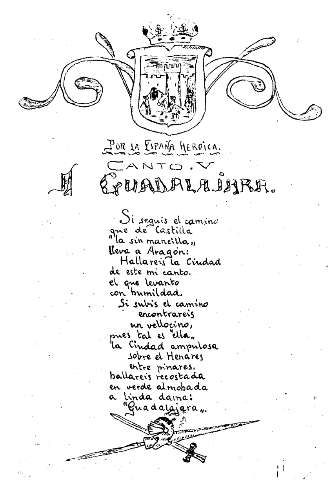 POR LA ESPAÑA HEROICA.
CANTO. V
A GUADALAJARA.
Si seguis el camino
que de Castilla
"la sin mancilla„
lleva a Aragón:
Hallareis la Ciudad
de este mi canto.
el que levanto
con humildad.
Si subis el camino
encontrareis
un vellocino,
pues tal es "ella„
la Ciudad ampulosa
sobre el Henares
entre pinares.
hallareis recostada
en verde almohada
a linda dama:
"Guadalajara„.